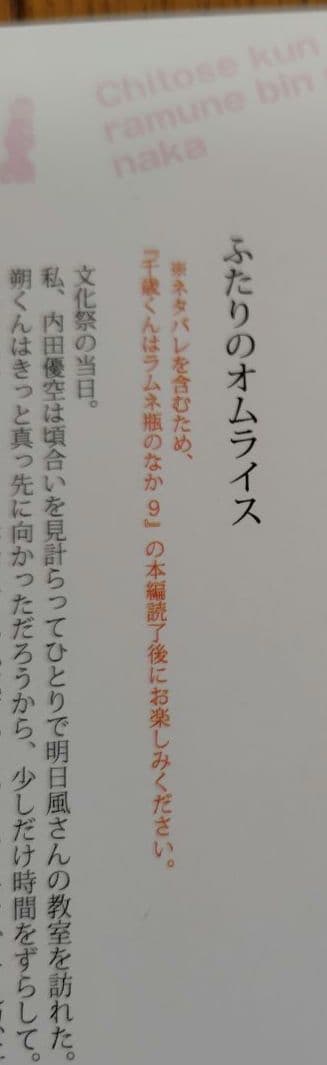 Chitose kun
ramune bin
naka
ふたりのオムライス
※ネタバレを含むため、
『千歳くんはラムネ瓶のなか 9』の本編読了後にお楽しみください。
文化祭の当日。
私、内田優空は頃合いを見計らってひとりで明日風さんの教室を訪れた。
朔くんはきっと真っ先に向かっただろうから、少しだけ時間をずらして。